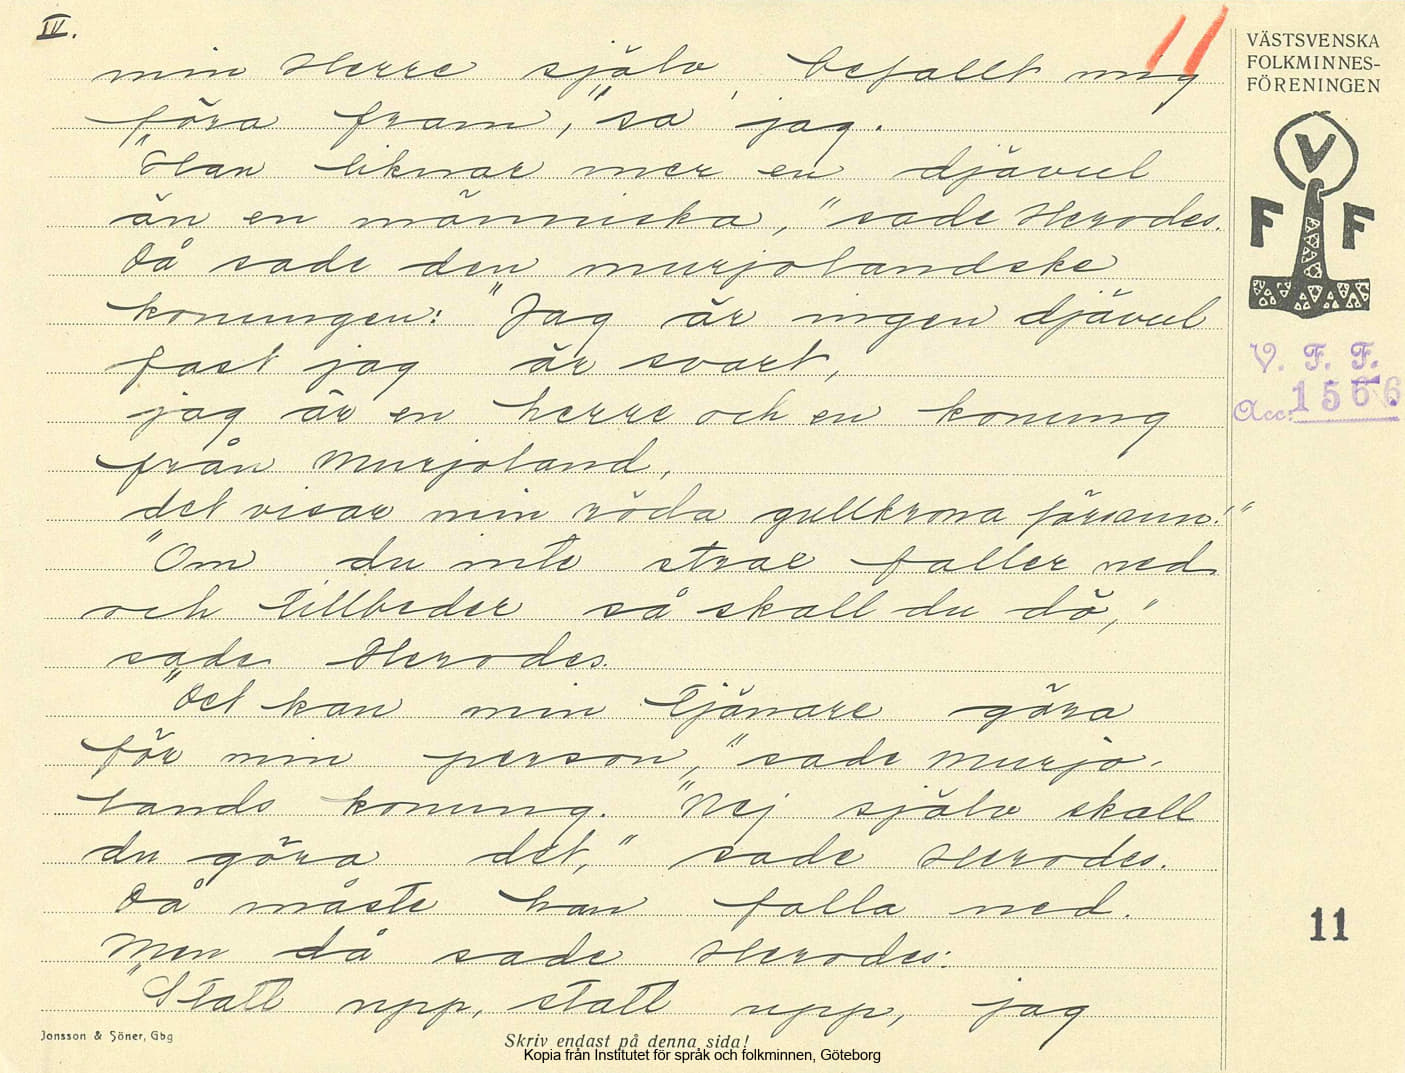 IV.
11
VÄSTSVENSKA
FOLKMINNES-
FÖRENINGEN
V
F F
V. F. F.
Acc: 1566
min Herre själv befallt mig
föra fram," sa' jag.
"Han liknar mer en djävul
än en människa," sade Herodes.
Då sade den murjolandske
konungen: "Jag är ingen djävul
fast jag är svart,
jag är en herre och en konung
från Murjoland,
det visar min röda gullkrona försann!"
"Om du inte strax faller ned
och tillbeder så skall du dö,"
sade Herodes.
"Det kan min tjänare göra
för min person," sade Murjo-
lands konung. "Nej själv skall
du göra det," sade Herodes.
Då måste han falla ned.
Men då sade Herodes:
"Statt upp, statt upp, jag
11
Jonsson & Söner, Gbg
Skriv endast på denna sida!
Kopia från Institutet för språk och folkminnen, Göteborg